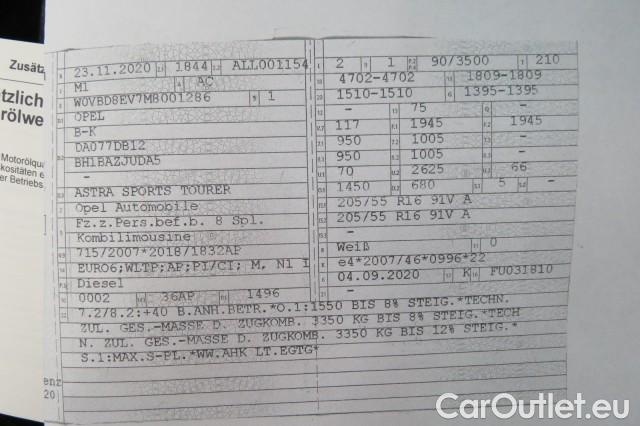 Zusätz
tzlich
rölwe
Motorölqu
kositäten e
er Betriebs
23.11.2020 1844 ALL001154
M1 AC
W0VBD8EV7M8001286 9 1
OPEL
B-K
DA077DB12
BH1BAZJUDA5
-
ASTRA SPORTS TOURER
Opel Automobile
Fz.z.Pers.bef.b. 8 Spl.
Kombilimousine
715/2007*2018/1832AP
EURO6;WLTP;AP;PI/CI; M, N1 I
Diesel
0002 36AP 1496
2 1 90/3500 210
4702-4702 1809-1809
1510-1510 1395-1395
- 75 -
117 1945 1945
950 1005 -
950 1005 -
70 2625 66
1450 680 5 -
205/55 R16 91V A
205/55 R16 91V A
-
Weiß 0
e4*2007/46*0996*22
04.09.2020 K FU031810
7.2/8.2:+40 B.ANH.BETR.*O.1:1550 BIS 8% STEIG.*TECHN.
ZUL. GES.-MASSE D. ZUGKOMB. 3350 KG BIS 8% STEIG.*TECH
N. ZUL. GES.-MASSE D. ZUGKOMB. 3350 KG BIS 12% STEIG.*
S.1:MAX.S-PL.*WW.AHK LT.EGTG*
enz
20)
CarOutlet.eu